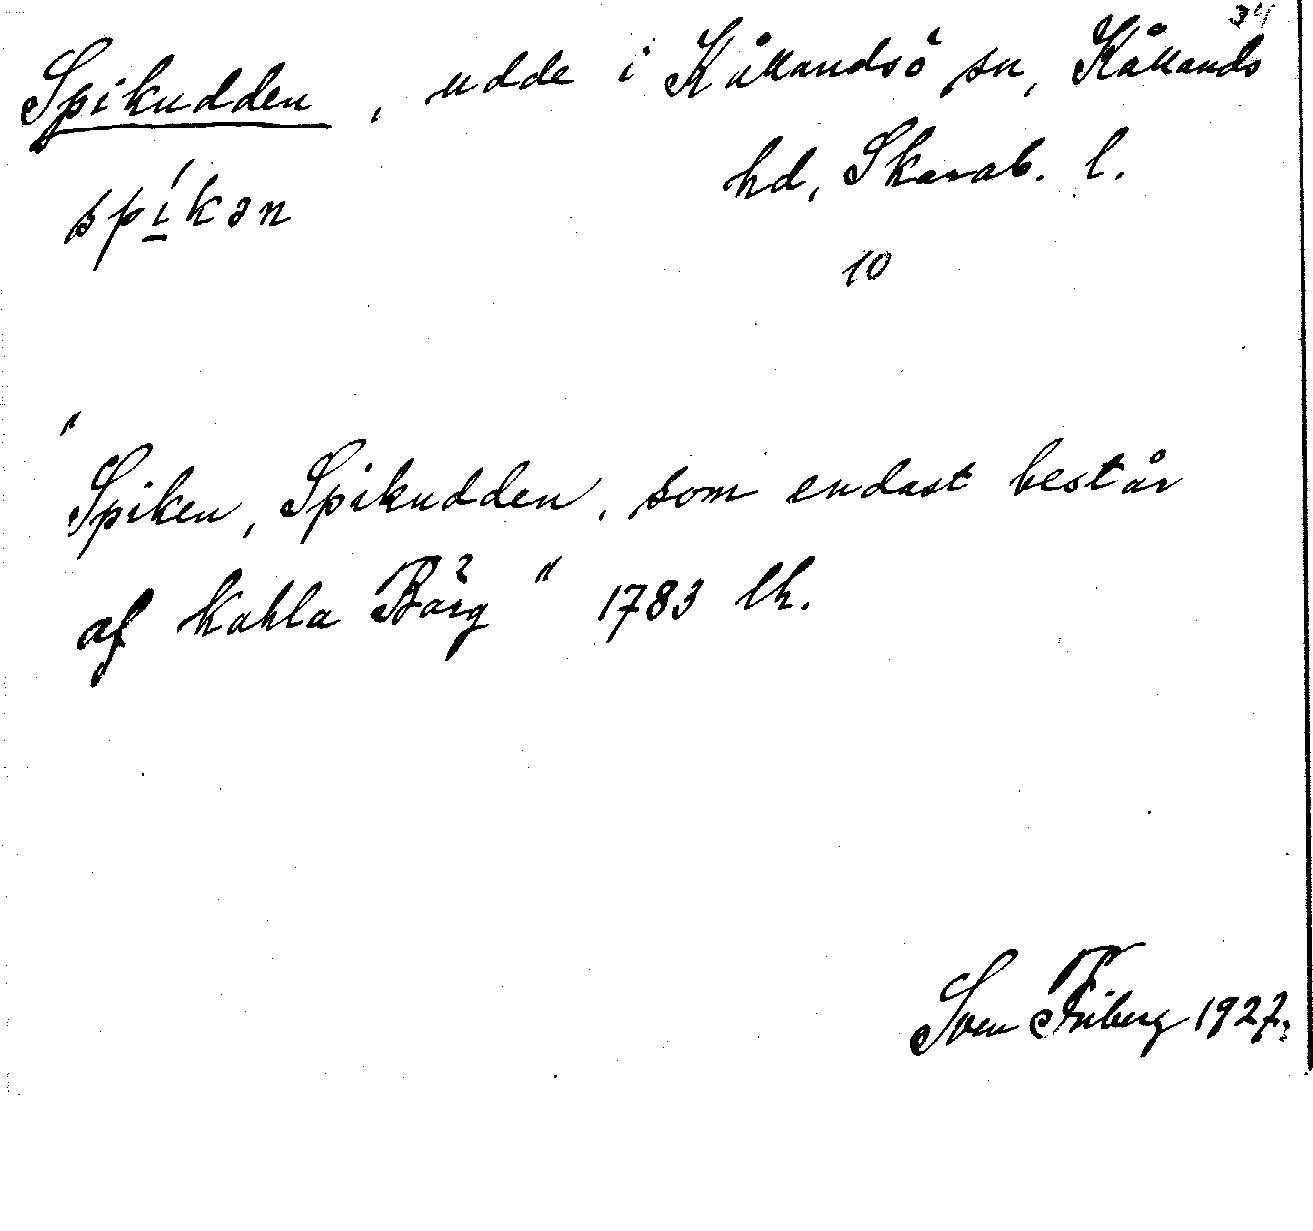 34
Spikudden, udde i Kållandsö sn, Kållands
hd, Skarab. l.
spíkən
10
"Spiken, Spikudden, som endast består
af kahla Bärg" 1783 lh.
Sven Friberg 1927.